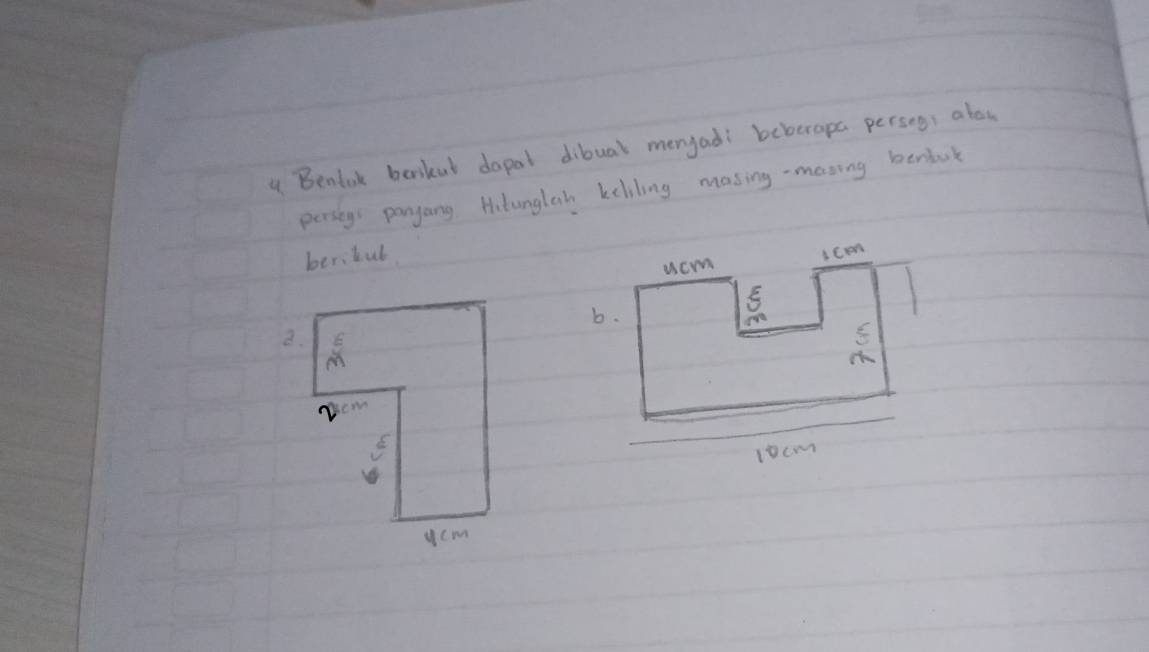 4. Bentuk berikut dapat dibuat menjadi beberapa persegi atau
persegi panjang Hitunglah keliling masing-masing bentuk
berikut.
a.
3cm
2cm
6cm
4cm
b.
4cm
3cm
1cm
7cm
10cm